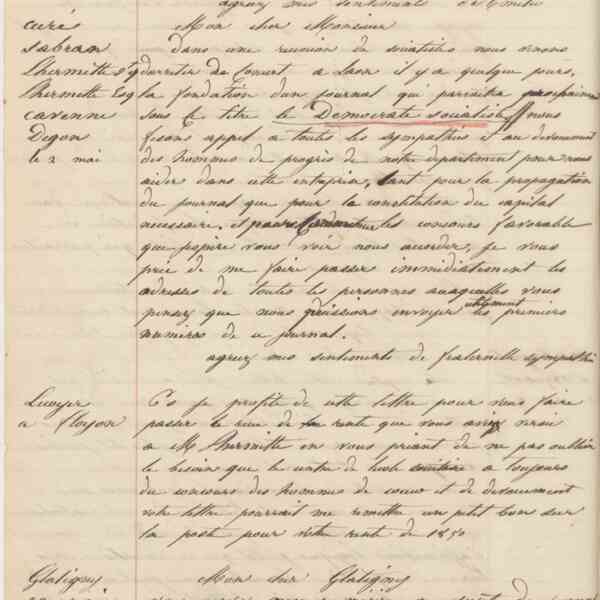 agréez mes sentiments
curé Mon cher Monsieur
sabran dans une reunion de socialistes nous venons
Lhermitte d'arreter de concert a Laon il y a quelque jours,
Lhermitte Esq la fondation d'un journal qui paraitra prochainement
cavenne sous le titre le Democrate socialiste nous
Degon fesons appel a toutes les sympathies et au devouement
le 2 mai des hommes de progrès de notre departement pour nous
aider dans cette entreprise, tant pour la propagation
du journal que pour la constitution du capital
necessaire. et les concours favorable
que j'espire vous voir nous accorder, je vous
prie de me faire passer immédiatement les
adresses de toutes les personnes auxquelles vous
pensez que nous puissions envoyer utilement les premiers
numéros de ce journal.
agreez mes sentiments de fraternelle sympathie
Lecuyer P.S je profite de cette lettre pour vous faire
a floyon passer le recu de la rente que vous aviez remis
a M Lhermitte en vous priant de ne pas oublier
le besoin que le centre de l'ecole sociétaire a toujours
du concours des hommes de coeur et de devouement
votre lettre pourrait me remettre un petit bon sur
la poste pour votre rente de 1850
Glatigny Mon cher Glatigny